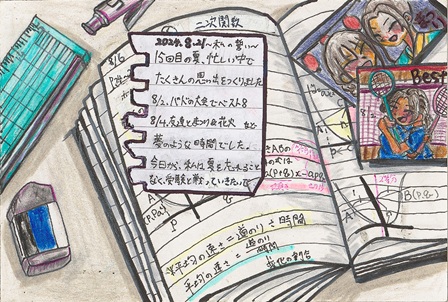 二次関数
2024. 8.21 〜私の誓い〜
15回目の夏、忙しい中で
たくさんの思い出をつくりました
8/2、バドの大会でベスト8
8/4、友達とお祭り&花火 など
夢のような時間でした。
今日から、私は夏を忘れること
なく、受験と戦っていきたい
8/6
Best
きABの
B(P.q.)
平均の速さ=道のり÷時間
平均の速さ=道のり
時間
変化の割合